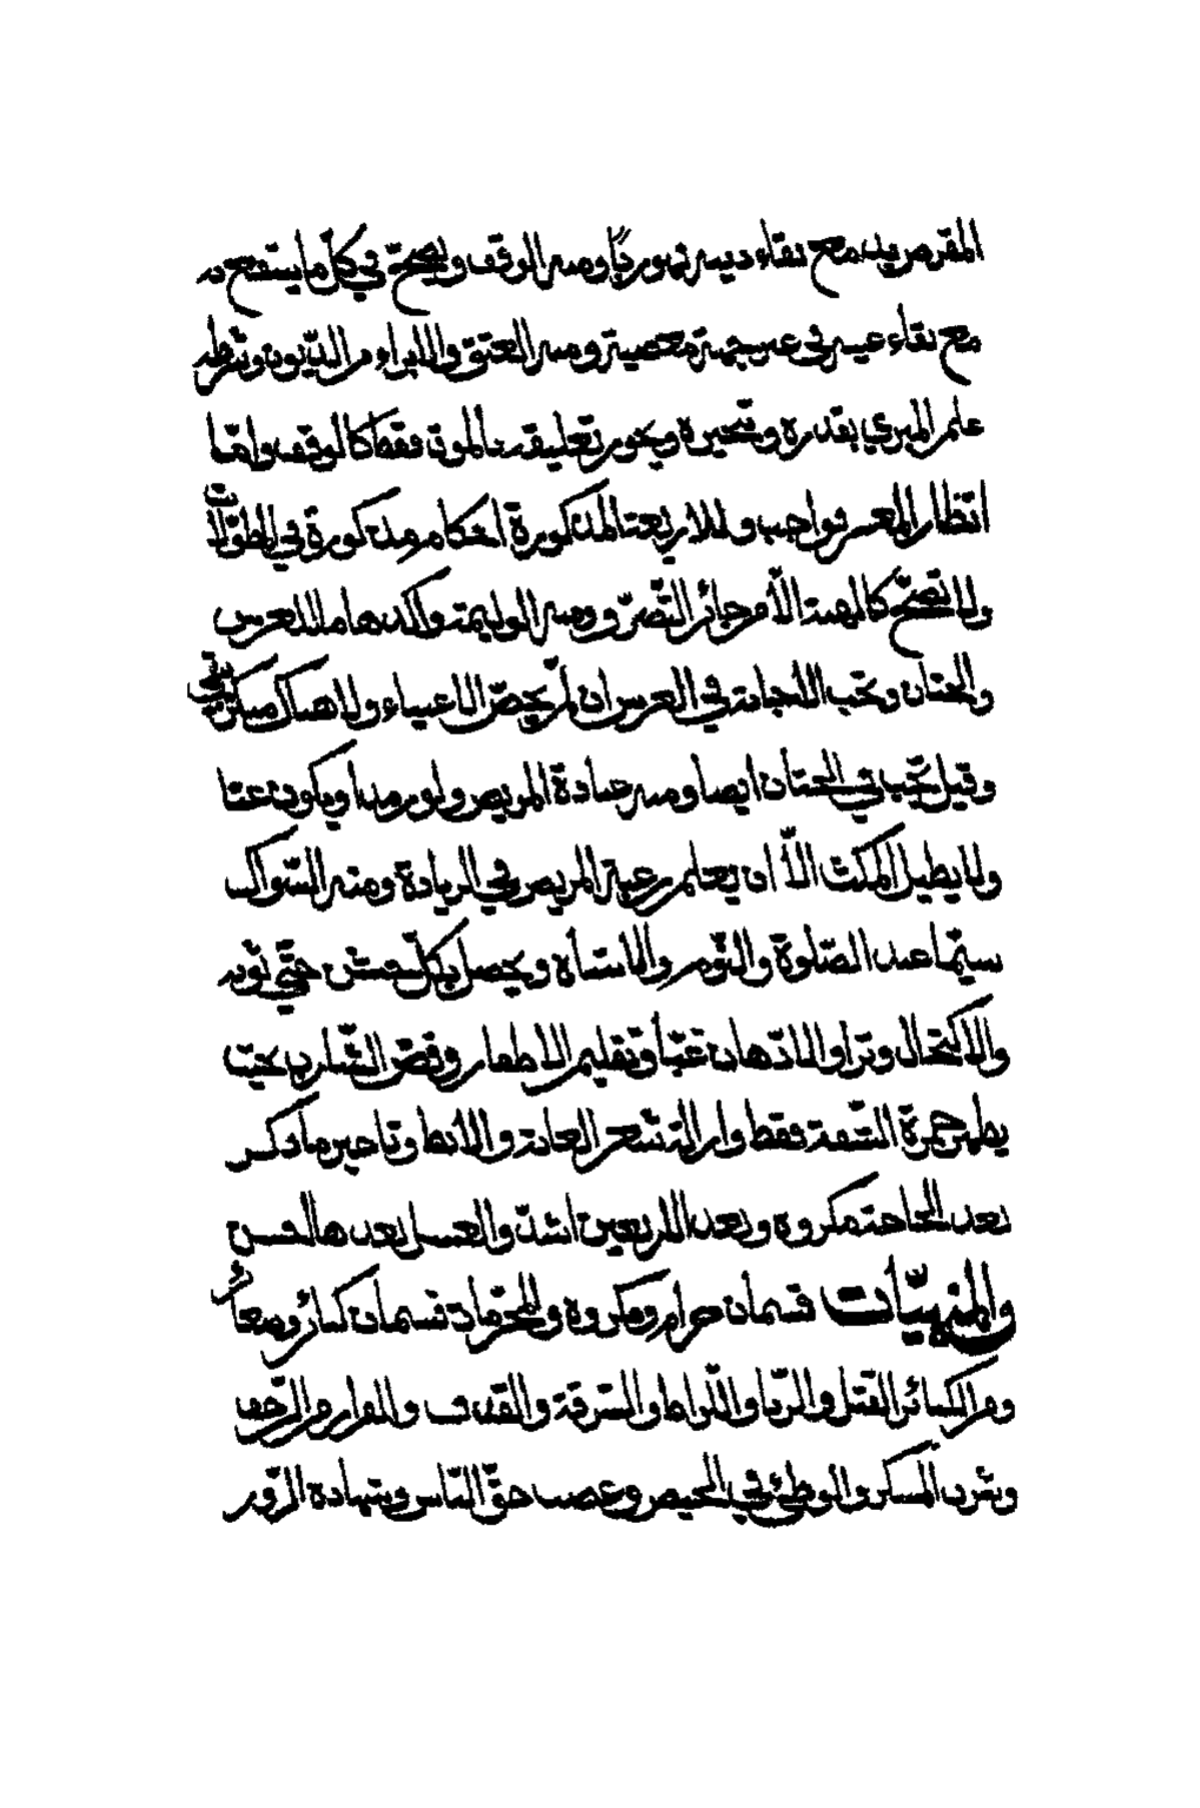 المقرض به مع بقاء دينه فهو ربًا ومنه الوقف ويصحّ في كلّ ما ينتفع به
مع بقاء عينه في غير جهة معصية ومنه العتق والابراء من الديون وشرطه
علم المبرئ بقدره وتنجيزه ويجوز تعليقه بالموت فقط كالوقف وامّا
انظار المعسر فواجب وللاربعة المذكورة احكام مذكورة في المطوّلات
ولا تصحّ كالهبة الّا من جائز التصرّف ومنه الوليمة وآكدها ما للعرس
والختان وتجب الاجابة في العرس ان لم يخصّ الاغنياء ولا هناك منكر
وقيل تجب في الختان ايضا ومنه عيادة المريض ولو رمدا ويكون غبّا
ولا يطيل المكث الّا ان يعلم رغبة المريض في الزيادة ومنه السّواك
سيّما عند الصّلوة والنّوم والانتباه ويحصل بكلّ خشن حتّى ثوبه
والاكتحال وترا والادّهان غبّا وتقليم الاظفار وقصّ الشّارب بحيث
يظهر حمرة الشّفة فقط وازالة شعر العانة والابط وتاخير ما ذكر
بعد الحاجة مكروه وبعد الاربعين اشدّ والغسل بعدها لحسن
والمنهيّات قسمان حرام ومكروه والمحرّمات قسمان كبائر وصغائر
ومن الكبائر القتل والرّبا والزّنا واللّواط والسّرقة والقذف والفرار من الزّحف
وشرب المسكر والوطئ في الحيض وغصب حقّ النّاس وشهادة الزّور